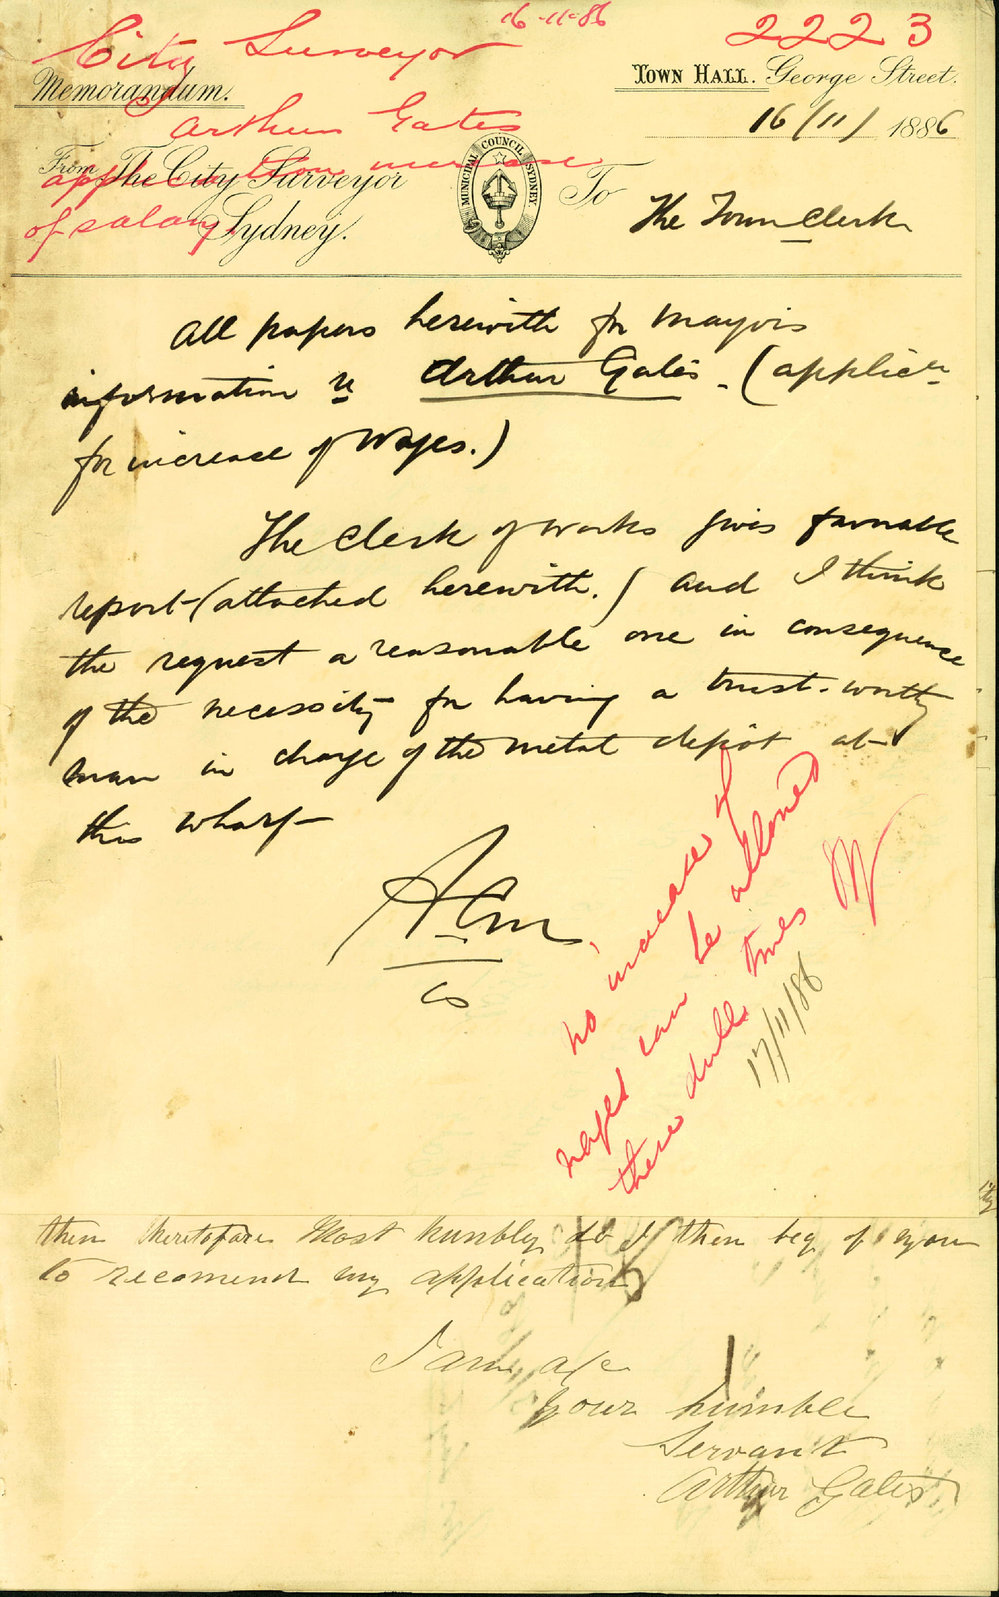 16-11-86
2223
City Surveyor
Memorandum.
TOWN HALL. George Street.
Arthur Gates
16/11/ 1886
application increase
of salary
From The City Surveyor
Sydney.
MUNICIPAL COUNCIL SYDNEY
To
The Town Clerk
All papers herewith for Mayors
information re Arthur Gates - (applicn
for increase of Wages.)
The Clerk of Works gives favorable
report (attached herewith.) and I think
the request a reasonable one in consequence
of the necessity for having a trust-worthy
man in charge of the metal depôt at
this wharf
CS
No increase of
wages can be allowed
these dull times M
17/11/86
then theretofare Most humbly do I then beg of you
to recomend my application
I am
your humble
Servant
Arthur Gates